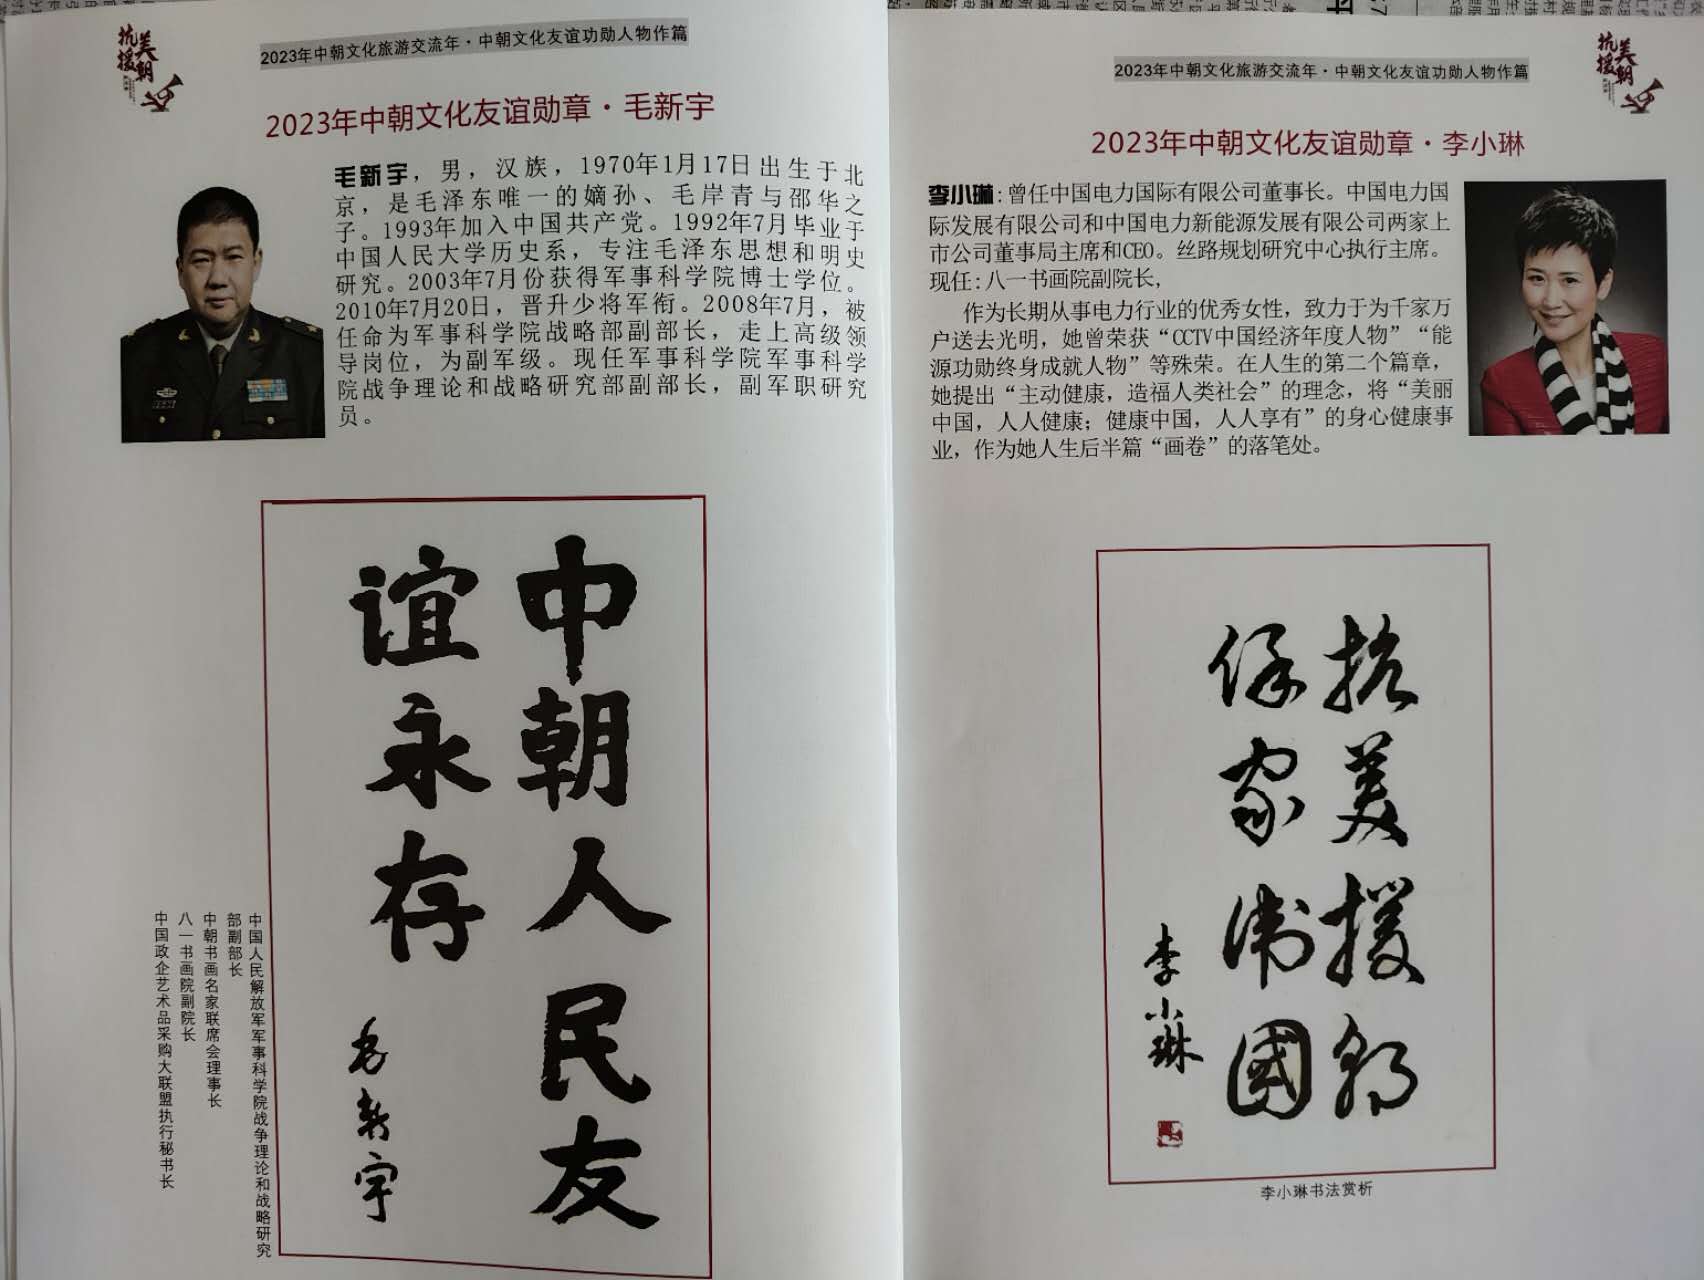 抗美
援朝
2023年中朝文化旅游交流年·中朝文化友谊功勋人物作篇
2023年中朝文化友谊勋章·毛新宇
毛新宇，男，汉族，1970年1月17日出生于北
京，是毛泽东唯一的嫡孙、毛岸青与邵华之
子。1993年加入中国共产党。1992年7月毕业于
中国人民大学历史系，专注毛泽东思想和明史
研究。2003年7月份获得军事科学院博士学位。
2010年7月20日，晋升少将军衔。2008年7月，被
任命为军事科学院战略部副部长，走上高级领
导岗位，为副军级。现任军事科学院军事科学
院战争理论和战略研究部副部长，副军职研究
员。
中朝人民友
谊永存
毛新宇
中国人民解放军军事科学院战争理论和战略研究
部副部长
中朝书画名家联席会理事长
八一书画院副院长
中国政企艺术品采购大联盟执行秘书长
2023年中朝文化旅游交流年·中朝文化友谊功勋人物作篇
抗美
援朝
2023年中朝文化友谊勋章·李小琳
李小琳:曾任中国电力国际有限公司董事长。中国电力国
际发展有限公司和中国电力新能源发展有限公司两家上
市公司董事局主席和CEO。丝路规划研究中心执行主席。
现任:八一书画院副院长,
作为长期从事电力行业的优秀女性，致力于为千家万
户送去光明，她曾荣获“CCTV中国经济年度人物”“能
源功勋终身成就人物”等殊荣。在人生的第二个篇章，
她提出“主动健康，造福人类社会”的理念，将“美丽
中国，人人健康；健康中国，人人享有”的身心健康事
业，作为她人生后半篇“画卷”的落笔处。
抗美援朝
保家衛國
李小琳
李小琳书法赏析